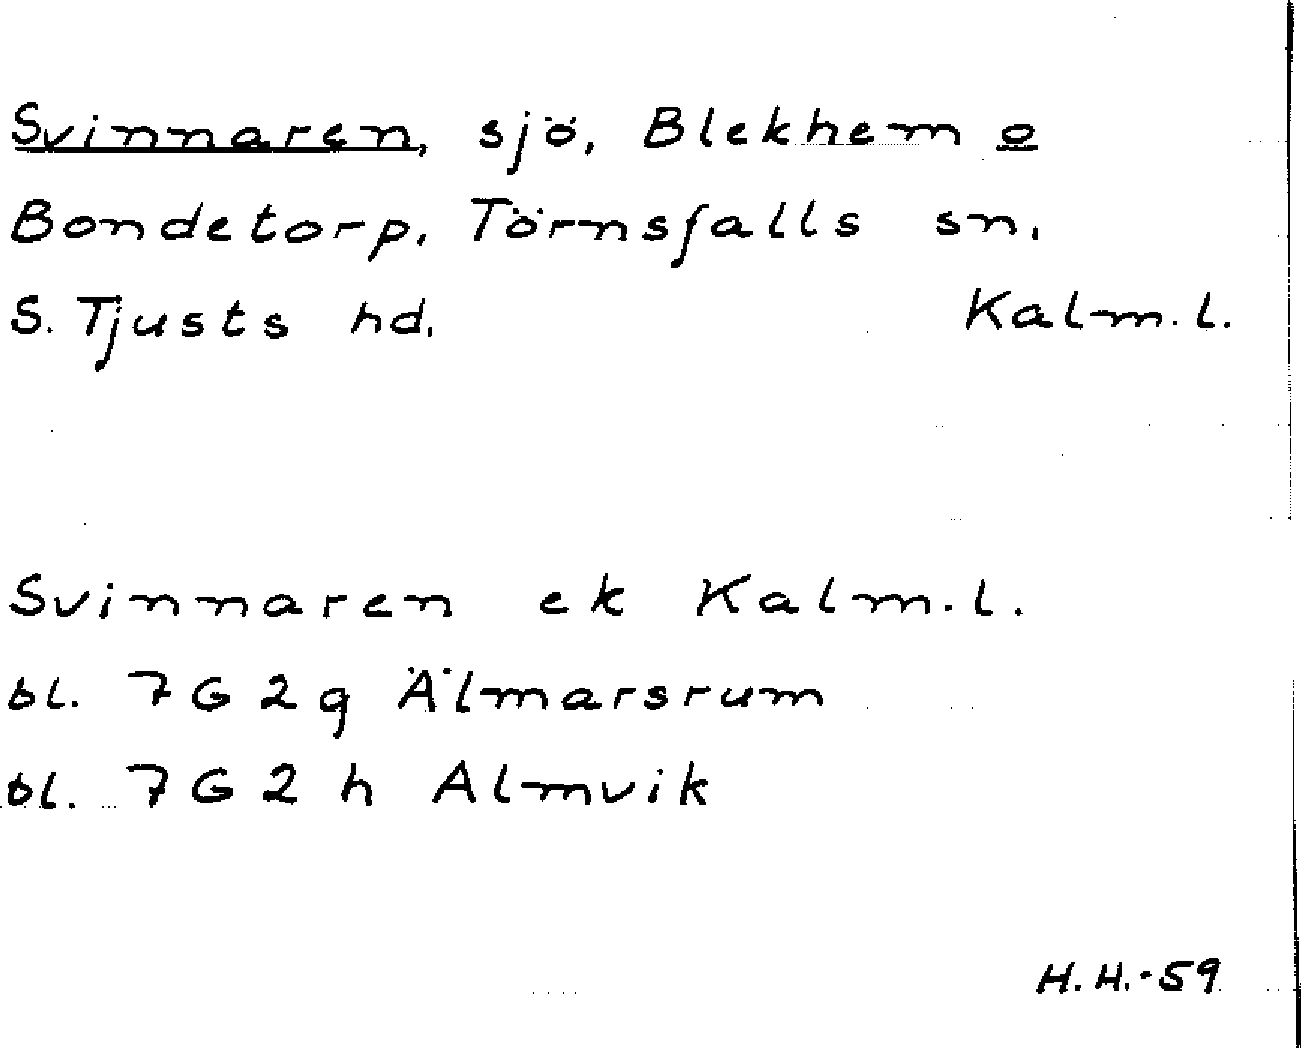 Svinnaren, sjö, Blekhem o
Bondetorp, Törnsfalls sn.
S. Tjusts hd. Kalm.l.
Svinnaren ek Kalm.l.
bl. 7G2g Älmarsrum
bl. 7G2h Almvik
H.H.-59